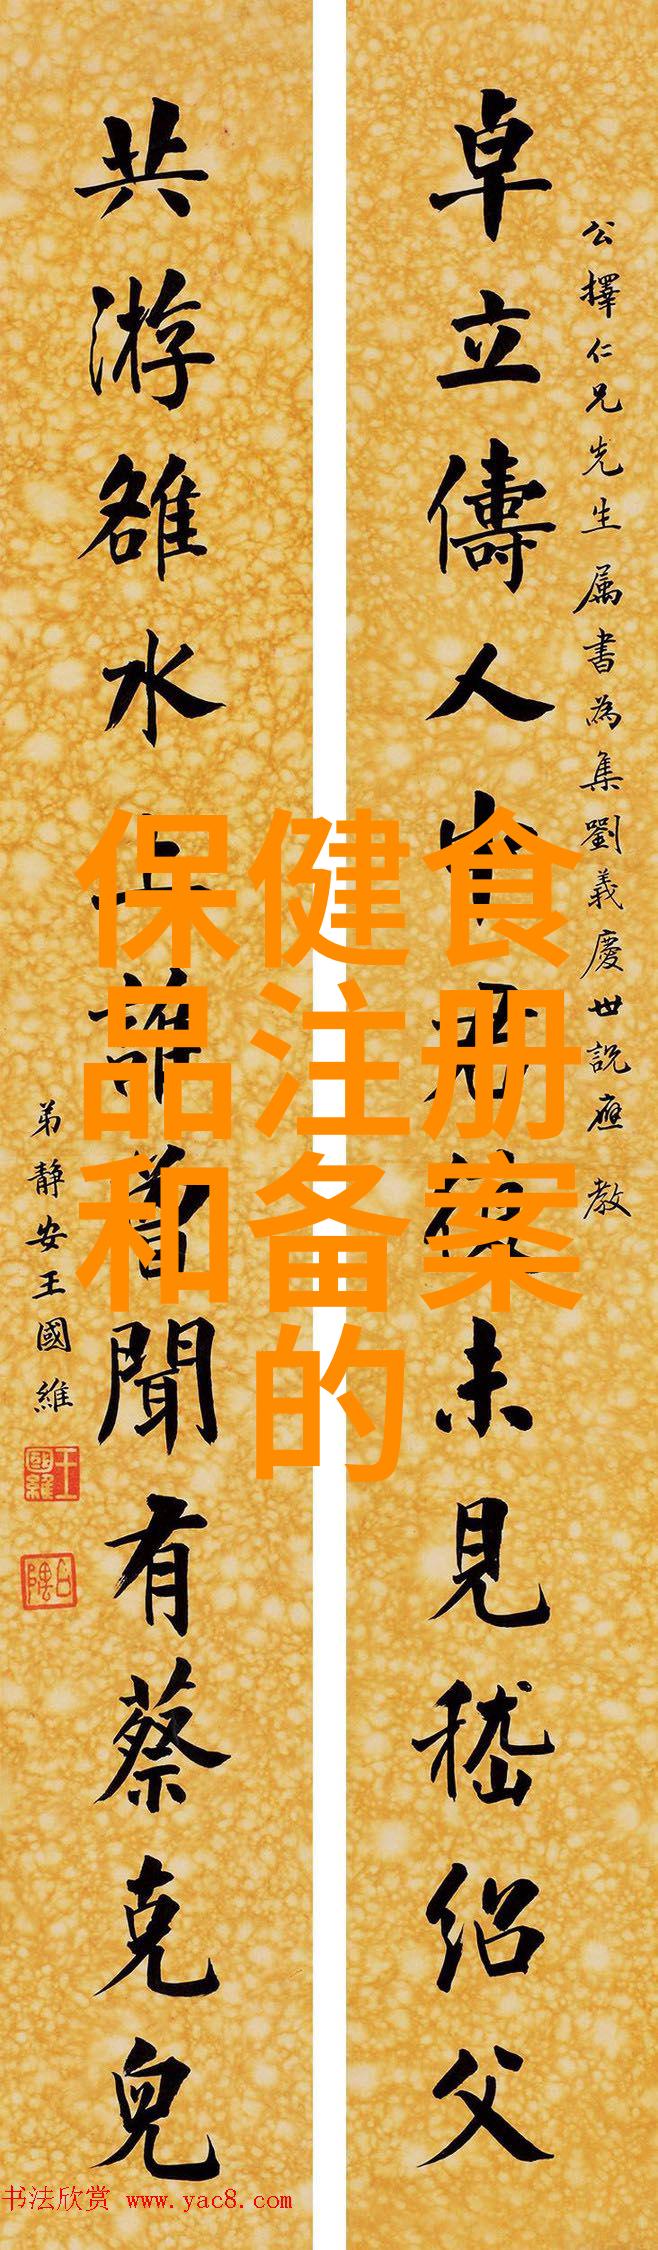 公擇仁兄先生属書為集劉義慶世說應教
卓立儔人
未見嵇绍父
共游雒水
聞有蔡克兒
弟靜安王國維
王國維
保健食
品注册
和备案
的
书法欣赏 www.yac8.com